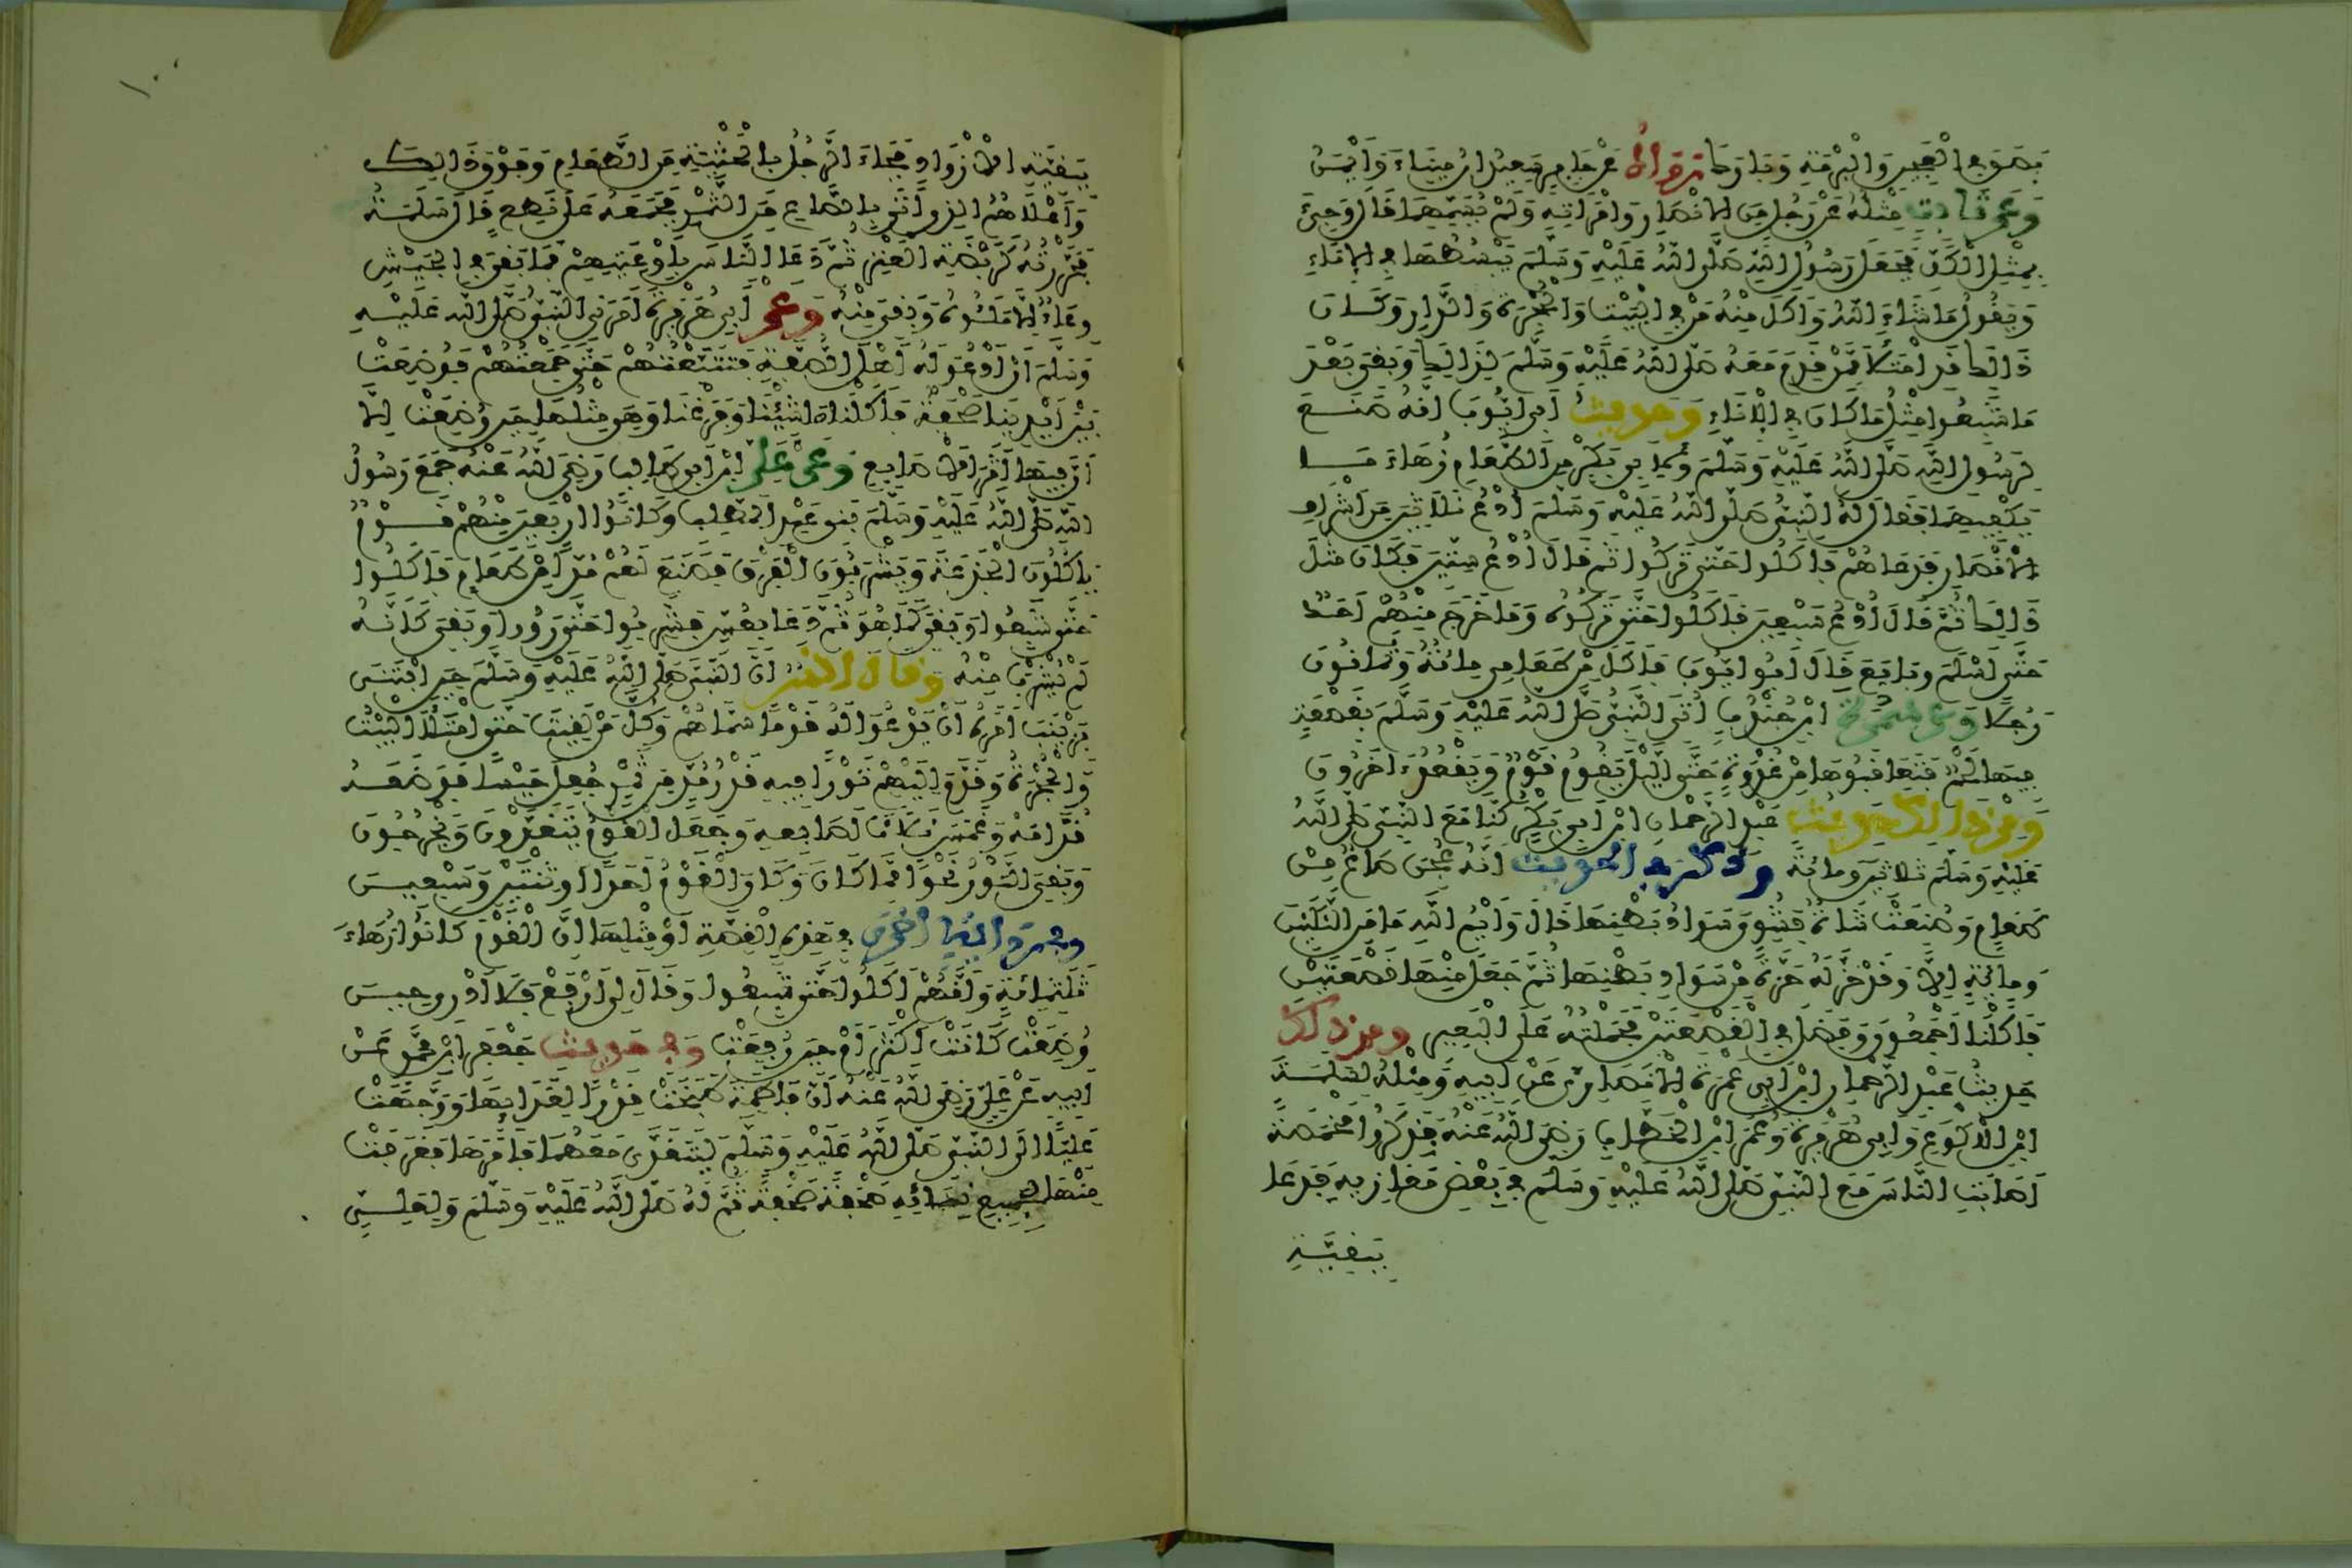 بصق في العجين والبرمة وبارك رواه عن جابر سعيد ابن ميناء وأيمن
وعن ثابت مثله عن رجل من الانصار وامرأته ولم يسمهما قال وجيء
بمثل الكف فجعل رسول الله صلى الله عليه وسلم يبسطها في الاناء
ويقول ما شاء الله وأكل منه من في البيت والحجرة والدار وكان
ذالك قد امتلأ ممن قدم معه صلى الله عليه وسلم لذالك وبقي بعد
ما شبعوا مثل ما كان في الاناء وحديث أبي أيوب أنه صنع
لرسول الله صلى الله عليه وسلم ولأبي بكر من الطعام زهاء ما
يكفيهما فقال له النبي صلى الله عليه وسلم ادع ثلاثين من أشراف
الانصار فدعاهم فأكلوا حتى تركوا ثم قال ادع ستين فكان مثل
ذالك ثم قال ادع سبعين فأكلوا حتى تركوه وما خرج منهم أحد
حتى أسلم وبايع قال أبوا أيوب فأكل من طعامي مائة وثمانون
رجلا وعن سمرة ابن جندب أتي النبي صلى الله عليه وسلم بقصعة
فيها لحم فتعاقبوها من غدوة حتى الليل يقوم قوم ويقعد اخرون
ومن ذالك حديث عبد الرحمان ابن أبي بكر كنا مع النبي صلى الله
عليه وسلم ثلاثين ومائة وذكر في الحديث أنه عجن صاع من
طعام وصنعت شاة فشوي سواد بطنها قال وأيم الله ما من الثلاثين
ومائة إلا وقد حز له حزة من سواد بطنها ثم جعل منها قصعتين
فأكلنا أجمعون وفضل في القصعتين فحملته على البعير ومن ذلك
حديث عبد الرحمان ابن أبي عمرة الانصاري عن أبيه ومثله لسلمة
ابن الأكوع وأبي هريرة وعمر ابن الخطاب رضي الله عنه فذكروا مخمصة
أصابت الناس مع النبي صلى الله عليه وسلم في بعض مغازيه فدعا
ببقية
١٠٠
ببقية الازواد فجاء الرجل بالحثية من الطعام وفوق ذالك
وأعلاهم الذي أتى بالصاع من التمر فجمعه على نطع قال سلمة
فحزرته كربضة العنز ثم دعا الناس بأوعيتهم فما بقي في الجيش
وعاء إلا ملئوه وبقي منه وعن أبي هريرة أمرني النبي صلى الله عليه
وسلم أن أدعو له أهل الصفة فتتبعتهم حتى جمعتهم فوضعت
بين أيدينا صحفة فأكلنا ما شئنا وفرغنا وهي مثلها حين وضعت إلا
أن فيها أثر الاصابع وعن علي ابن أبي طالب رضي الله عنه جمع رسول
الله صلى الله عليه وسلم بني عبد المطلب وكانوا أربعين منهم قوم
يأكلون الجذعة ويشربون الفرق فصنع لهم مدا من طعام فأكلوا
حتى شبعوا وبقي كما هو ثم دعا بعس فشربوا حتى رووا وبقي كأنه
لم يشرب منه وقال أنس أن النبي صلى الله عليه وسلم حين ابتنى
بزينب أمره أن يدعوا له قوما سماهم وكل من لقيت حتى امتلأ البيت
والحجرة وقدم إليهم تورا فيه قدر مد من تمر جعل حيسا فوضعه
قدامه وغمس ثلاث أصابعه وجعل القوم يتغدون ويخرجون
وبقي التور نحوا مما كان وكان القوم أحدا أو اثنين وسبعين
وفي رواية أخرى في هذه القصة أو مثلها ان القوم كانوا زهاء
ثلثمائة وأنهم أكلوا حتى شبعوا وقال لي ارفع فلا أدري حين
وضعت كانت أكثر أم حين رفعت وفي حديث جعفر ابن محمد عن
أبيه عن علي رضي الله عنه أن فاطمة طبخت قدرا لغدائها ووجهت
عليا الى النبي صلى الله عليه وسلم ليتغدى معهما فأمرها فغرفت
منها لجميع نسائه صحفة صحفة ثم له صلى الله عليه وسلم ولعلي